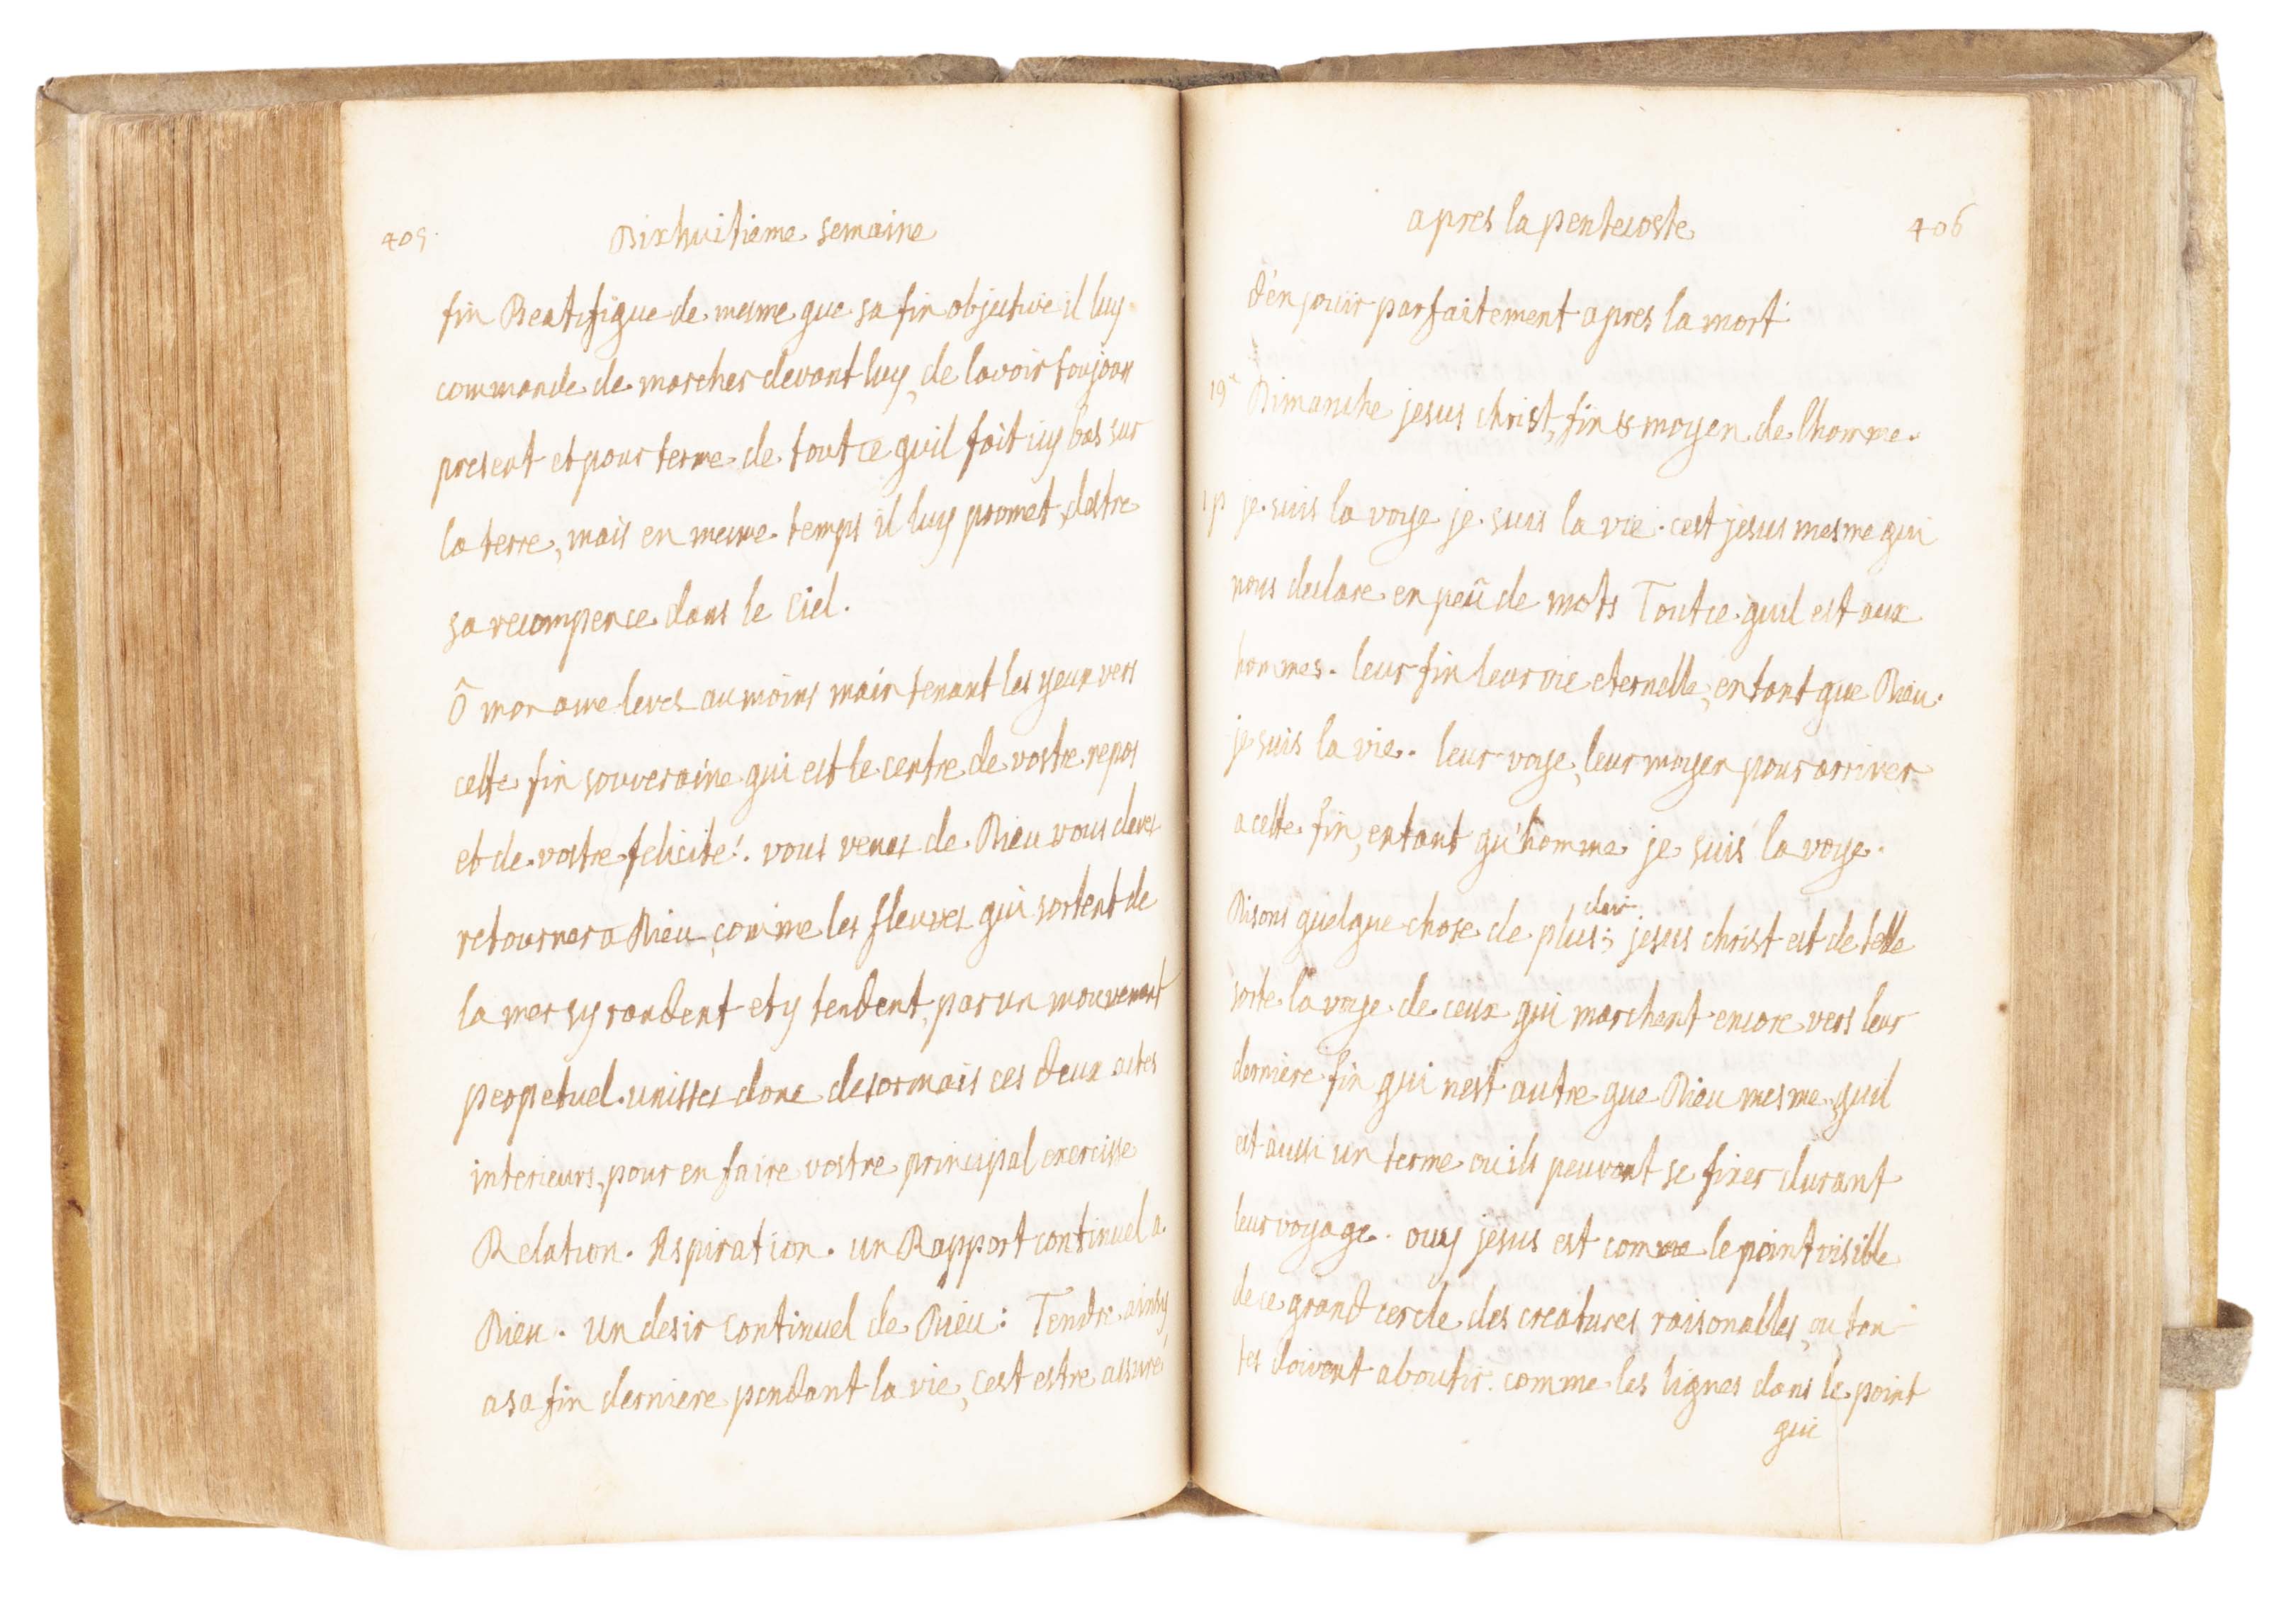 405.
Dixhuitieme semaine
fin Beatifique de mesme que sa fin objective il luy
commande de marcher devant luy, de lavoir toujour
present et pour terme de tout ce quil fait icy bas sur
la terre, mais en mesme temps il luy promet, destre
sa recompence dans le Ciel.
ô mon ame leves au moins maintenant les yeux vers
cette fin souveraine qui est le centre de vostre repos
et de vostre felicite!. vous venes de Dieu vous deves
retourner a Dieu, comme les fleuves qui sortent de
la mer sy rendent et y tendent, par un mouvement
perpetuel. unisses donc desormais ces deux actes
interieurs, pour en faire vostre principal exercisse
Relation. Aspiration. un Rapport continuel a
Dieu. un desir continuel de Dieu: Tendre ainsy
a sa fin derniere pendant la vie, cest estre assuré
apres la pentecoste
406
d'en jouir parfaitement apres la mort
19e Dimanche jesus christ, fin & moyen de lhomme.
1 p je suis la voye je suis la vie. cest jesus mesme qui
nous declare en peu de mots Tout ce quil est aux
hommes. leur fin leur vie eternelle, en tant que Dieu.
je suis la vie. leur voye, leur moyen pour arriver
a cette fin, en tant qu'homme je suis la voye.
clair
Disons quelque chose de plus; jesus christ est de telle
sorte la voye de ceux qui marchent encore vers leur
derniere fin qui nest autre que Dieu mesme, quil
est aussi un terme ou ils peuvent se fixer durant
leur voyage. ouy jesus est comme le point visible
de ce grand cercle des creatures raisonables, ou tou-
tes doivent aboutir. comme les lignes dans le point
qui